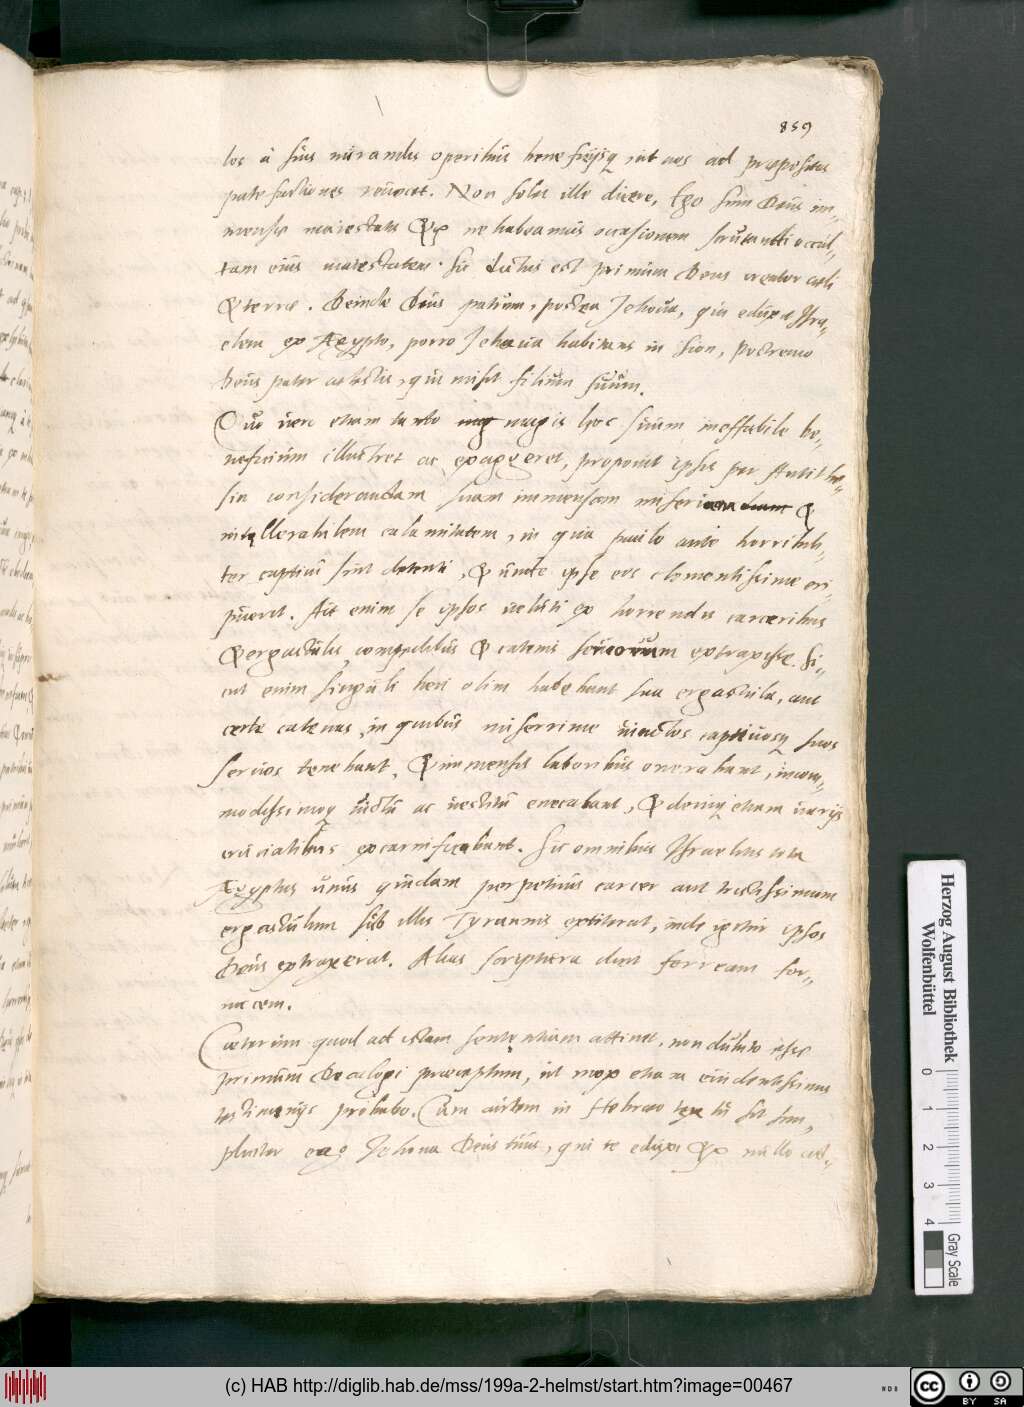 859
los à suis mirandis operibus beneficijsq ut nos ad praepositas
patefactiones revocet. Non solet ille dicere, Ego sum Deus im-
mensae maiestatis &c ne habeamus occasionem scrutandi occul-
tam eius maiestatem. Sic dictus est primum Deus creator caeli
& terrae. Deinde Deus patrum, postea Jehova, qui eduxit Isra-
elem ex Aegypto, porro Jehova habitans in Sion, postremo
Deus pater caelestis, qui misit filium suum.
Quo vero etiam tanto mag magis hoc suum ineffabile be-
neficium illustret ac exaggeret, proponit ipsis per Antithe-
sin considerandam suam immensam miseri &
intollerabilem calamitatem, in qua paulo ante horribili-
ter captivi sint detenti, & unde ipse eos clementissime eri-
puerit. Ait enim se ipsos veluti ex horrendis carceribus
& ergastulis compedibus & catenis servorum extraxisse. Si-
cut enim singuli heri olim habebant sua ergastula, aut
certe catenas, in quibus miserrime vinctos captivosq suos
servos tenebant, & immensis laboribus onerabant, incom-
modissimoq victu ac vestitu enecabant, & deniq etiam varijs
cruciatibus excarnificabant. Sic omnibus Israelitis tota
Aegyptus unus quidam perpetuus carcer aut tristissimum
ergastulum sub illis Tyrannis extiterat, inde igitur ipsos
Deus extraxerat. Alias scriptura dicit ferream for-
nacem.
Caeterum quod ad istam sententiam attinet, non dubito esse
primum Decalogi praeceptum, ut mox etiam evidentissimis
testimonijs probabo. Cum autem in Hebraeo textu sit sim-
pliciter ego Jehova Deus tuus, qui te eduxi &c nullo
Herzog August Bibliothek
Wolfenbüttel
0
1
2
3
4
Gray Scale
(c) HAB http://diglib.hab.de/mss/199a-2-helmst/start.htm?image=00467
NDB
cc
BY SA